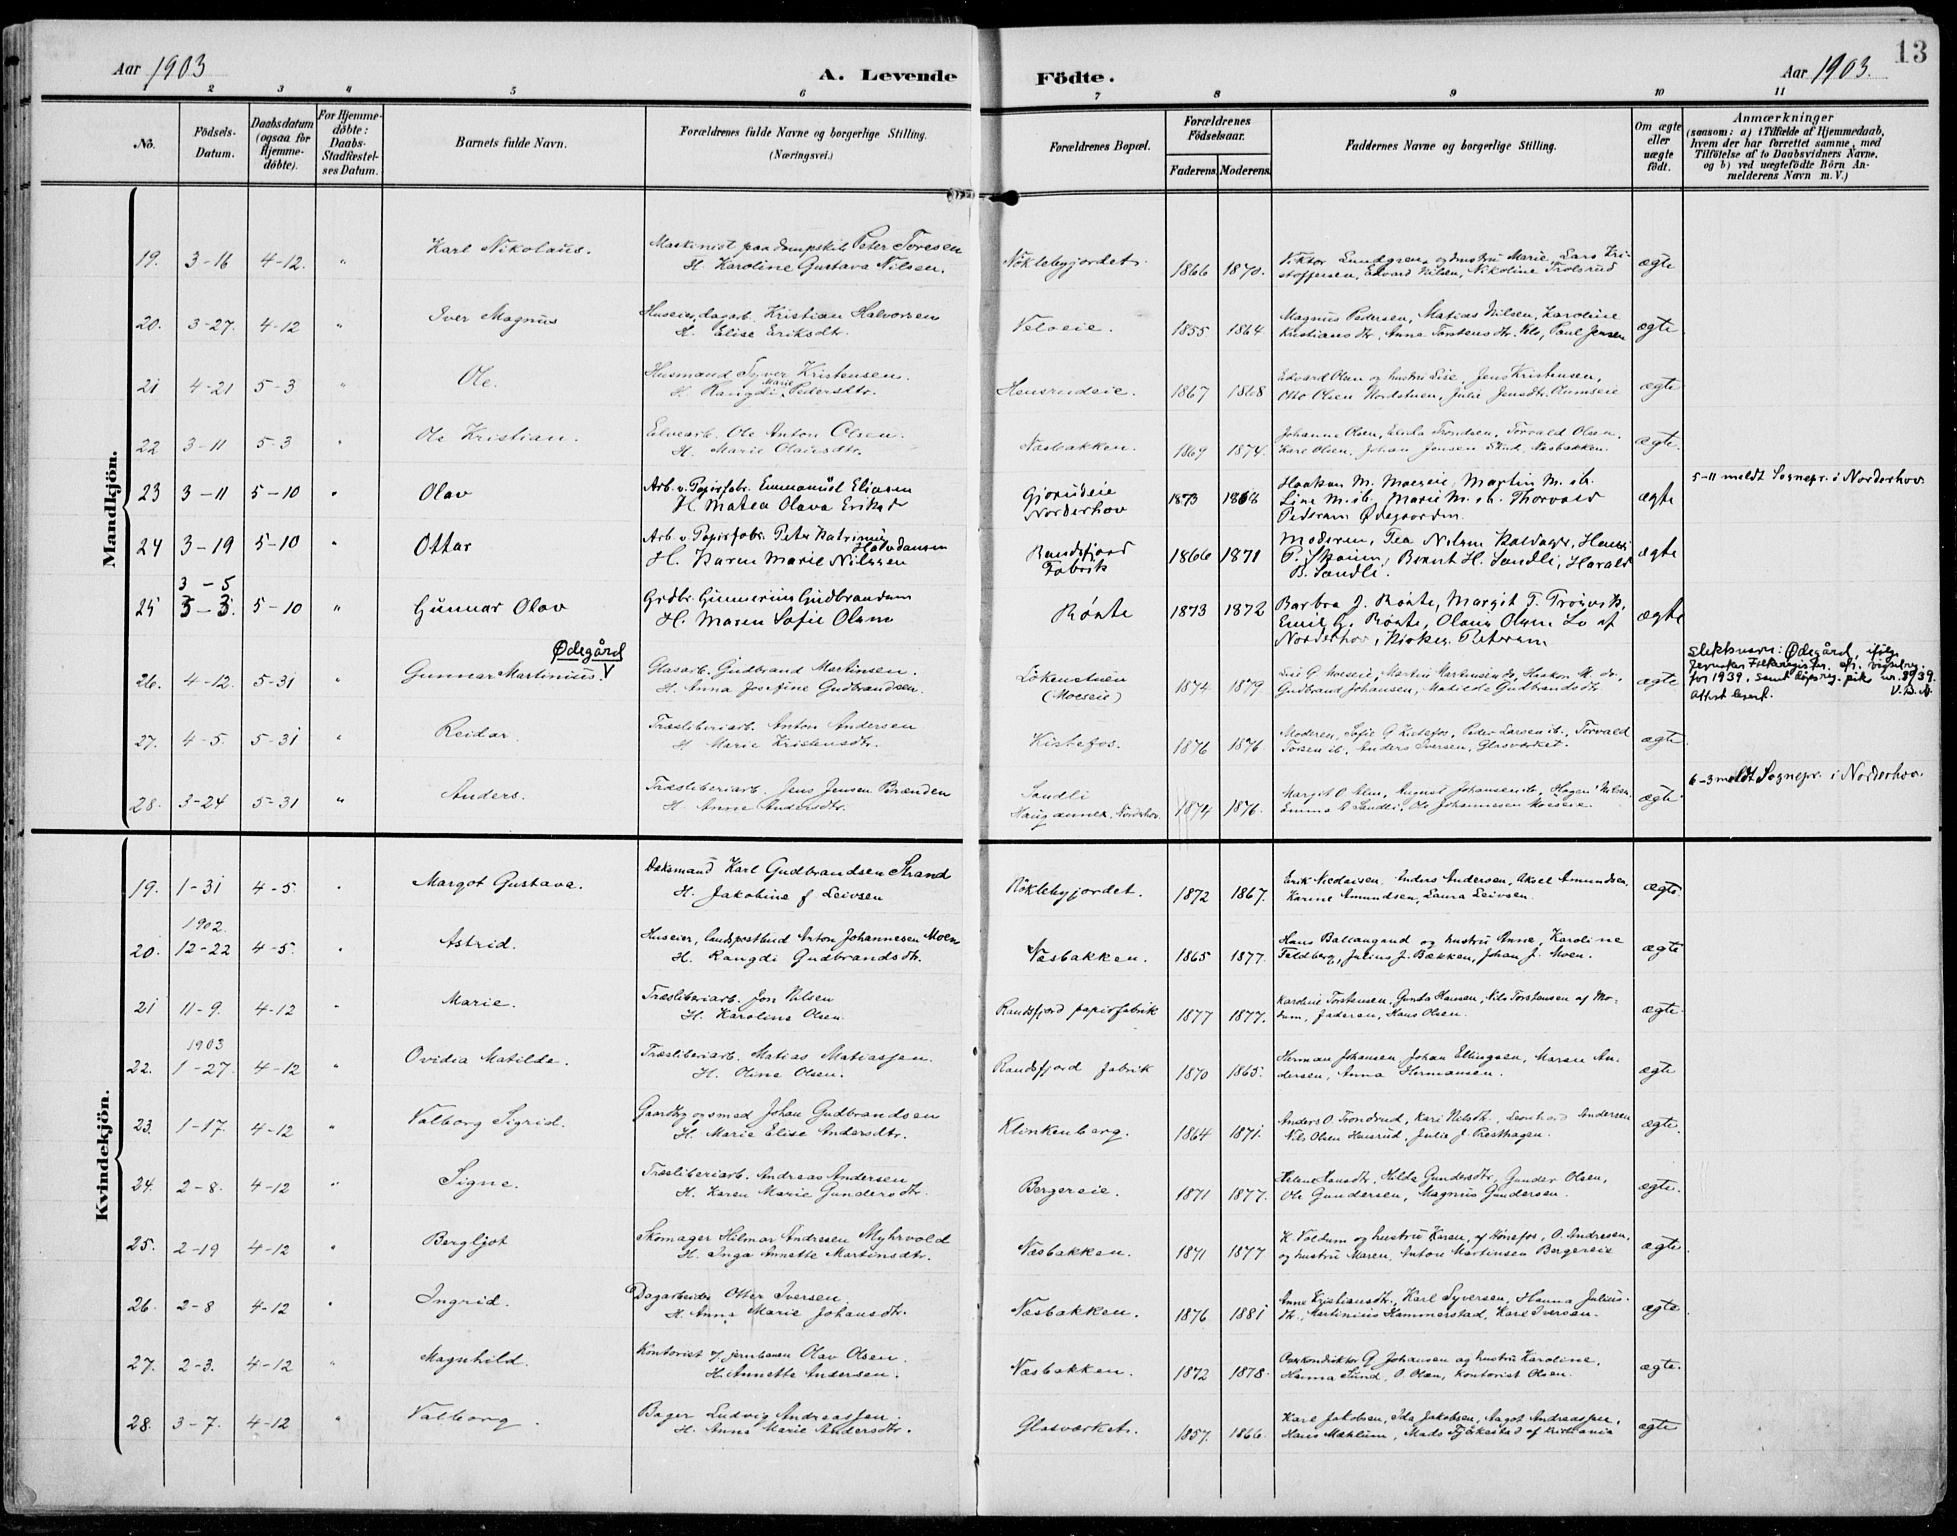 Aar 1903
A. Levende
Födte.
Aar 1903.
13
1 2 3 4 5 6 7 8 9 10 11
No.
Födsels-
Datum.
Daabsdatum
(ogsaa for
Hjemme-
döbte).
For Hjemme-
döbte:
Daabs-
Stadfæstel-
ses Datum.
Barnets fulde Navn.
Forældrenes fulde Navne og borgerlige Stilling.
(Næringsvei.)
Forældrenes Bopæl.
Forældrenes
Födselsaar.
Faderens. Moderens.
Faddernes Navne og borgerlige Stilling.
Om ægte
eller
uægte
födt.
Anmærkninger
(saasom: a) i Tilfælde af Hjemmedaab,
hvem der har forrettet samme, med
Tilföielse af to Daabsvidners Navne,
og b) ved uægtefödte Börn An-
melderens Navn m. V.)
Mandkjön.
19. 3-16 4-12. " Karl Nikolaus. Maskinist paa dampskib Peter Toresen
H. Karoline Gustava Nilsen. Nöklebygjordet. 1866 1870. Viktor Lundgren og hustru Marie, Lars Kri-
stoffersen, Edvard Nilsen, Nikoline Trolsrud ægte
20. 3-27. 4-12 " Iver Magnus Huseier, dagarb. Kristian Halvorsen
H. Elise Eriksdtr. Velveie. 1855 1864. Magnus Pedersen, Matias Nilsen, Karoline
Kristiansdtr., Anne Torstensdtr. Paul Jensen ægte
21 4-21 5-3 " Ole. Husmand Syver Kristensen.
H. Rangdi Marie Pedersdtr. Hensrudeie. 1867 1868 Edvard Olsen og hustru Lise, Jens Kristensen,
Otto Olsen Nordstuen, Julie Jensdtr. ægte
22 3-11 5-3 " Ole Kristian. Elvearb. Ole Anton Olsen.
H. Marie Olausdtr. Næsbakken. 1869 1874. Johanne Olsen, Trondsen, Torvald Olsen,
Kare Olsen, Johan Jensen Næsbakken. ægte.
23 3-11 5-10 " Olav Arb. v. Papirfabr. Emmanuel Eliasen
H. Matea Olava Eriksd Gjorudeie
Norderhov 1873 1868 Haakon M. Moeseie, Martin M. sts.
Line M. sts. Marie M. sts. Thorvald
Pedersen Ødegaarden. ægte 5-11 meldt Sognepr. i Norderhov
24 3-19 5-10 " Ottar Arb. v. Papirfabr. Peter Katrinus
Halvdansen
H. Karen Marie Nilssen Randsfjord
Fabrik 1866 1871 Moderen, Tea Nilsen Kaldager, Hans
P. Skoien, Bernt H. Sandli, Harald
B. Sandli. ægte
3-5
25 3-3. 5-10 " Gunnar Olav Grdbr. Gunnerius Gudbrandsen
H. Maren Sofie Olsen Röste 1873 1872 Barbra J. Röste, Margit T. Trögvik,
Emil G. Röste, Olaus Olsen Lo af
Norderhov, Kirkes. Petersen ægte
Ødegård
26. 4-12. 5-31 " Gunnar Martinius. V Glasarb. Gudbrand Martinsen.
H. Anna Josefine Gudbrandsen. Lökenstuen
(Moeseie) 1874 1879 Moeseie, Martin Martinsen do, Haakon M. do,
Gudbrand Johansen, Matilde Gudbrandsdtr ægte Slektsnavn: Ødegård, ifölg.
Jevnaker Folkeregister,
for 1939,
Attest lesert. V. D. A.
27. 4-5. 5-31 " Reidar. Træsliberiarb. Anton Andersen
H. Marie Kristensdtr. Kistefos. 1876 1876. Moderen, Sofie G Kistefos, Peder Larsen ib., Torvald
Torsen ib., Anders Iversen, Glasværket. ægte
28. 3-24 5-31 " Anders. Træsliberiarb. Jens Jensen Brænden
H. Anne Andersdtr. Sandli
Haug annex. Norderhov. 1874 1876. Margit O. Johansen ib., Hagen Nilsen,
Emma O Sandli, Ole Johannesen Moeseie. ægte 6-3 meldt Sognepr. i Norderhov.
Kvindekjön.
19. 1-31 4-5. " Margot Gustava. Karl Gudbrandsen Strand
H. Jakobine f Leivsen Röklebygjordet. 1872 1867. Erik Nicolaisen, Anders Andersen, Aksel Amundsen,
Karine Amundsen, Laura Leivsen. ægte
1902.
20. 12-22 4-5. " Astrid. Huseier, landspostbud Anton Johannesen Moen
H. Rangdi Gudbrandsdtr. Næsbakken. 1865 1877. Hans Ballangrud og hustru Anne, Karoline
Feldberg, Julius J. Bækken, Johan J. Moen. ægte
21 11-9. 4-12 " Marie. Træsliberiarb. Jon Nilsen
H. Karoline Olsen Randsfjord papirfabrik 1877 1877. Karoline Torstensen, Gunda Hansen, Nils Torstensen af Mo-
dum, faderen, Hans Olsen. ægte.
1903
22. 1-27. 4-12 " Ovidia Matilde. Træsliberiarb. Matias Matiassen.
H. Oline Olsen. Randsfjord fabrik 1870 1865. Herman Johansen, Johan Ellingsen, Maren An-
dersen, Anna Hermansen. ægte
23. 1-17. 4-12 " Valborg Sigrid. Gaardbr og smed Johan Gudbrandsen
H. Marie Elise Andersdtr. Klinkenberg. 1864 1871. Anders O. Trondrud, Kari Nilsdtr., Leonhard Andersen
Nils Olsen Hensrud, Julie J. Presthagen. ægte.
24. 2-8. 4-12 " Signe. Træsliberiarb. Andreas Andersen
H. Karen Marie Gundersdtr. Bergereie. 1871 1877. Helene Hansdtr, Hilda Gundersdtr, Gunder Olsen,
Ole Gundersen, Magnus Gundersen. ægte.
25. 2-19 4-12 " Bergljot Skomager Hilmar Andresen Myhrvold
H. Inga Annette Martinsdtr. Næsbakken. 1871 1877 K. Voldum og hustru Karen, af Hönefos, O. Andresen,
og hustru Maren, Anton Martinsen Bergereie ægte
26. 2-8 4-12 " Ingrid. Dagarbeider Otter Iversen.
H. Anna Marie Johansdtr. Næsbakken. 1876 1881 Anne Kristiansdtr., Karl Syversen, Hanna Julius-
dtr., Martinius Hammerstad, Karl Iversen. ægte
27. 2-3. 4-12 " Magnhild. Kontorist v/ jernbanen Olav Olsen.
H. Annette Andersen. Næsbakken. 1872 1878. Overkonduktör G Johansen og hustru Karoline,
Hanna Lund, O. Olsen, Kontorist Olsen. ægte.
28. 3-7. 4-12 " Valborg. Bager Ludvig Andreassen.
H. Anna Marie Andersdtr. Glasværket. 1857. 1866. Karl Jakobsen, Ida Jakobsen, Aagot Andreassen,
Hans Mæhlum, Mads af Kristiania ægte